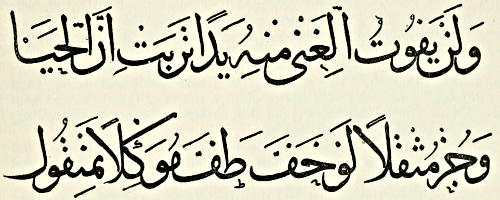 وَلَنْ يَفُوتُ الْغِنٰى مِنْهُ يَدًا تَرِبَتْ اِنَّ الْحَيَا
مُثْقَلاً لَوْ خَفَّ طَفَّ مُوَكِّلاً